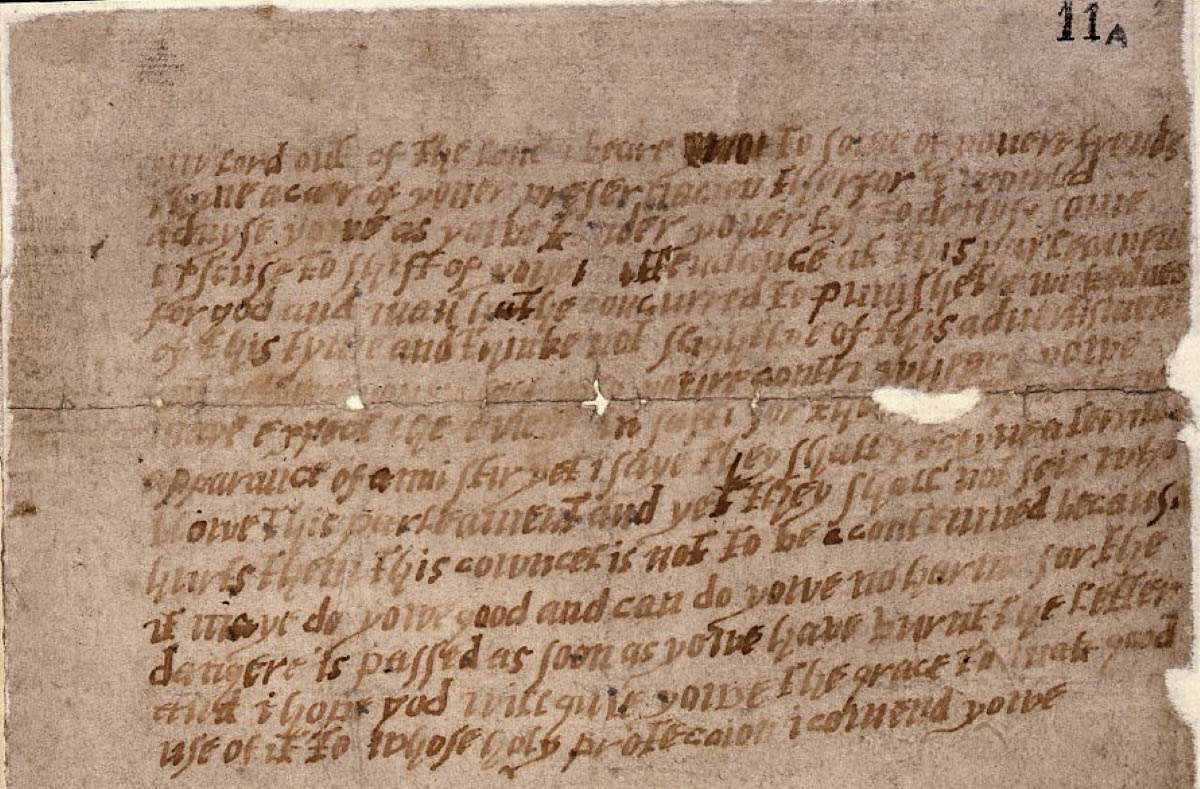 11A
my lord out of the love i beare to some of youere frends
i haue a caer of youer preseruacion therfor i would
aduyse yowe as yowe tender youer lyf to deuys some
excuse to shift of youer attendance at this parleament
for god and man hathe concurred to punishe the wickednes
of this tyme and thinke not slightlye of this aduertisment
youre contri wheare yowe
maye expect the euent in safti for
apparance of anni stir yet i saye they shall receyue a terribel
blowe this parleament and yet they shall not seie who
hurts them this cowncel is not to be acontemned because
it maye do yowe good and can do yowe no harme for the
dangere is passed as soon as yowe haue burnt the letter
and i hope god will giue yowe the grace to mak good
use of it to whose holy proteccion i comend yowe